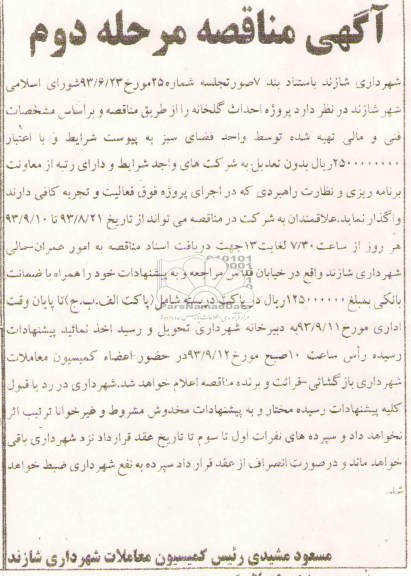 آگهی مناقصه مرحله دوم
شهرداری شازند باستناد بند ۷صورتجلسه شماره۲۵مورخ۹۳/۶/۲۳شورای اسلامی
شهر شازند در نظر دارد پروژه احداث گلخانه را از طریق مناقصه و براساس مشخصات
فنی و مالی تهیه شده توسط واحد فضای سبز به پیوست شرایط و با اعتبار
۲۵۰۰۰۰۰۰۰۰ریال بدون تعدیل به شرکت های واجد شرایط و دارای رتبه از معاونت
برنامه ریزی و نظارت راهبردی که در اجرای پروژه فوق فعالیت و تجربه کافی دارند
واگذار نماید.علاقمندان به شرکت در مناقصه می تواند از تاریخ ۹۳/۸/۲۱ تا ۹۳/۹/۱۰
هر روز از ساعت۷/۳۰ لغایت۱۳جهت دریافت اسناد مناقصه به امور عمران-مالی
شهرداری شازند واقع در خیابان قدس مراجعه و به پیشنهادات خود را همراه با ضمانت
بانکی بمبلغ ۱۲۵۰۰۰۰۰۰ریال در پاکت دربسته شامل(پاکت الف.ب.ج)تا پایان وقت
اداری مورخ۹۳/۹/۱۱به دبیرخانه شهرداری تحویل و رسید اخذ نمائید پیشنهادات
رسیده رأس ساعت ۱۰صبح مورخ۹۳/۹/۱۲در حضور اعضاء کمیسیون معاملات
شهرداری بازگشائی-قرائت و برنده مناقصه اعلام خواهد شد.شهرداری در رد یا قبول
کلیه پیشنهادات رسیده مختار و به پیشنهادات مخدوش مشروط و غیرخوانا ترتیب اثر
نخواهد داد و سپرده های نفرات اول تا سوم تا تاریخ عقد قرارداد نزد شهرداری باقی
خواهد ماند و درصورت انصراف از عقد قرار داد سپرده به نفع شهرداری ضبط خواهد
شد.
مسعود مشیدی رئیس کمیسیون معاملات شهرداری شازند